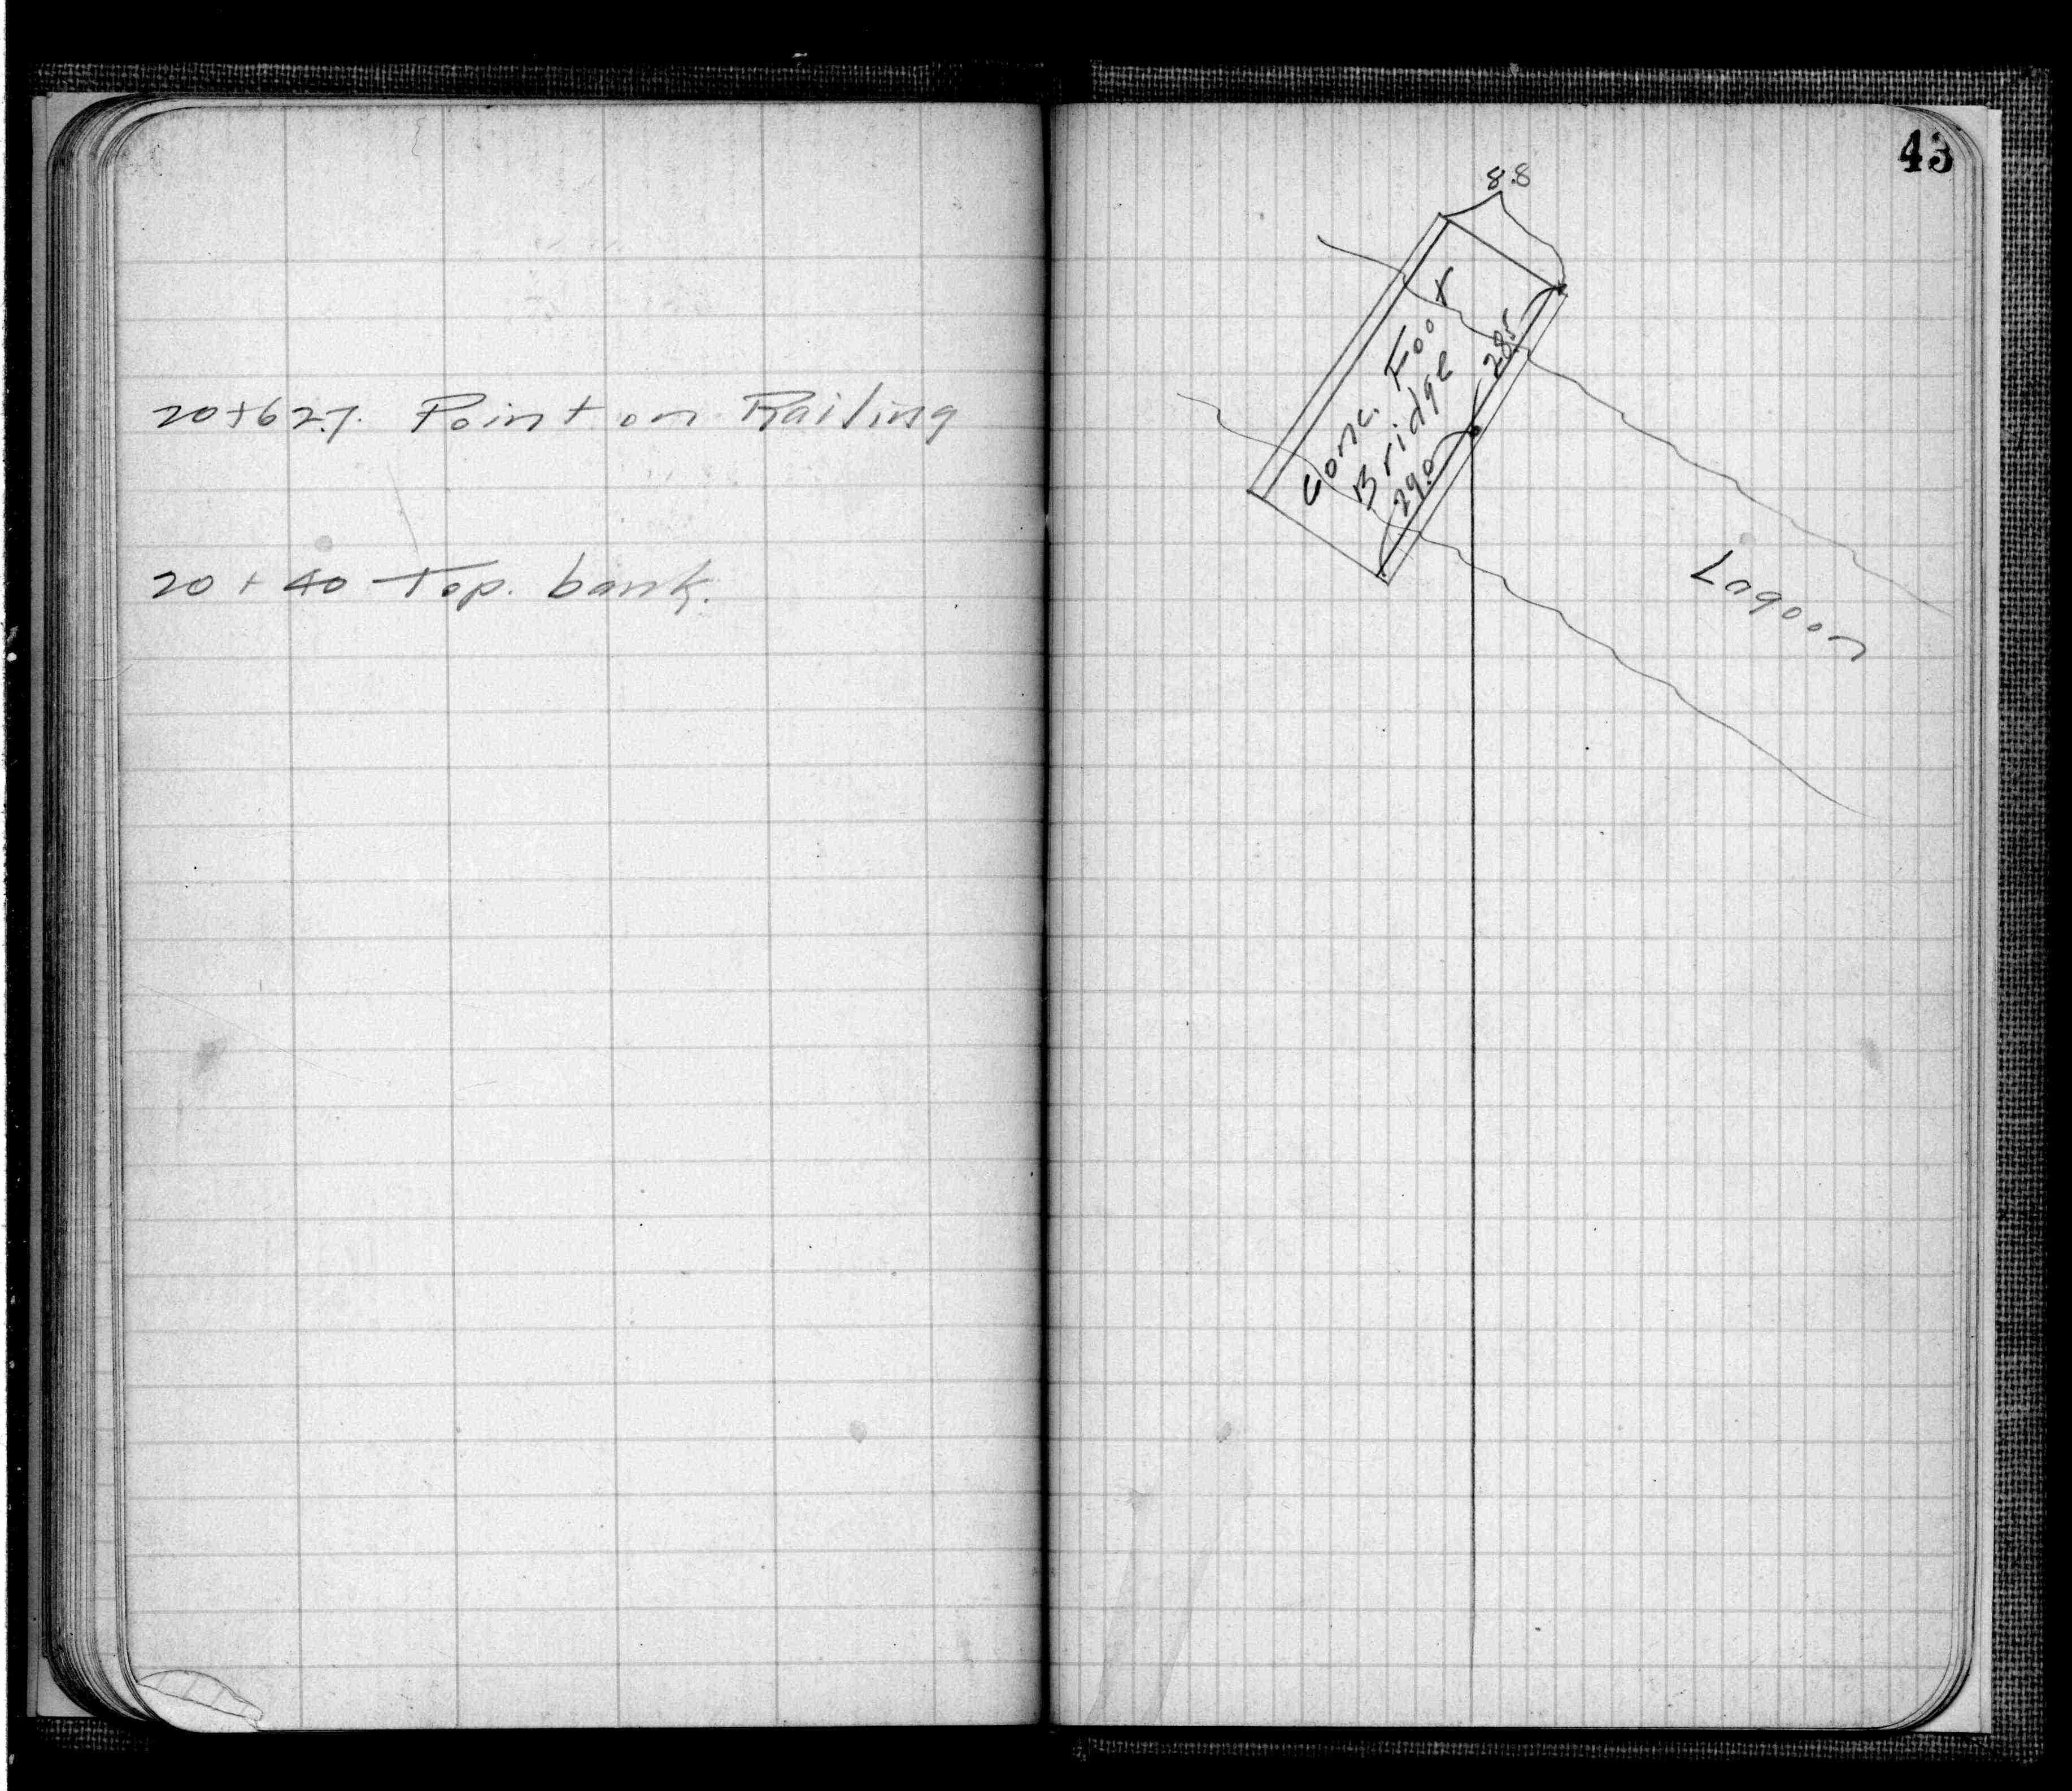 20+62.7. Point on Railing
20 + 40 Top. bank.
43
8.8
Conc. Foot
Bridge
28.5
29.0
Lagoon